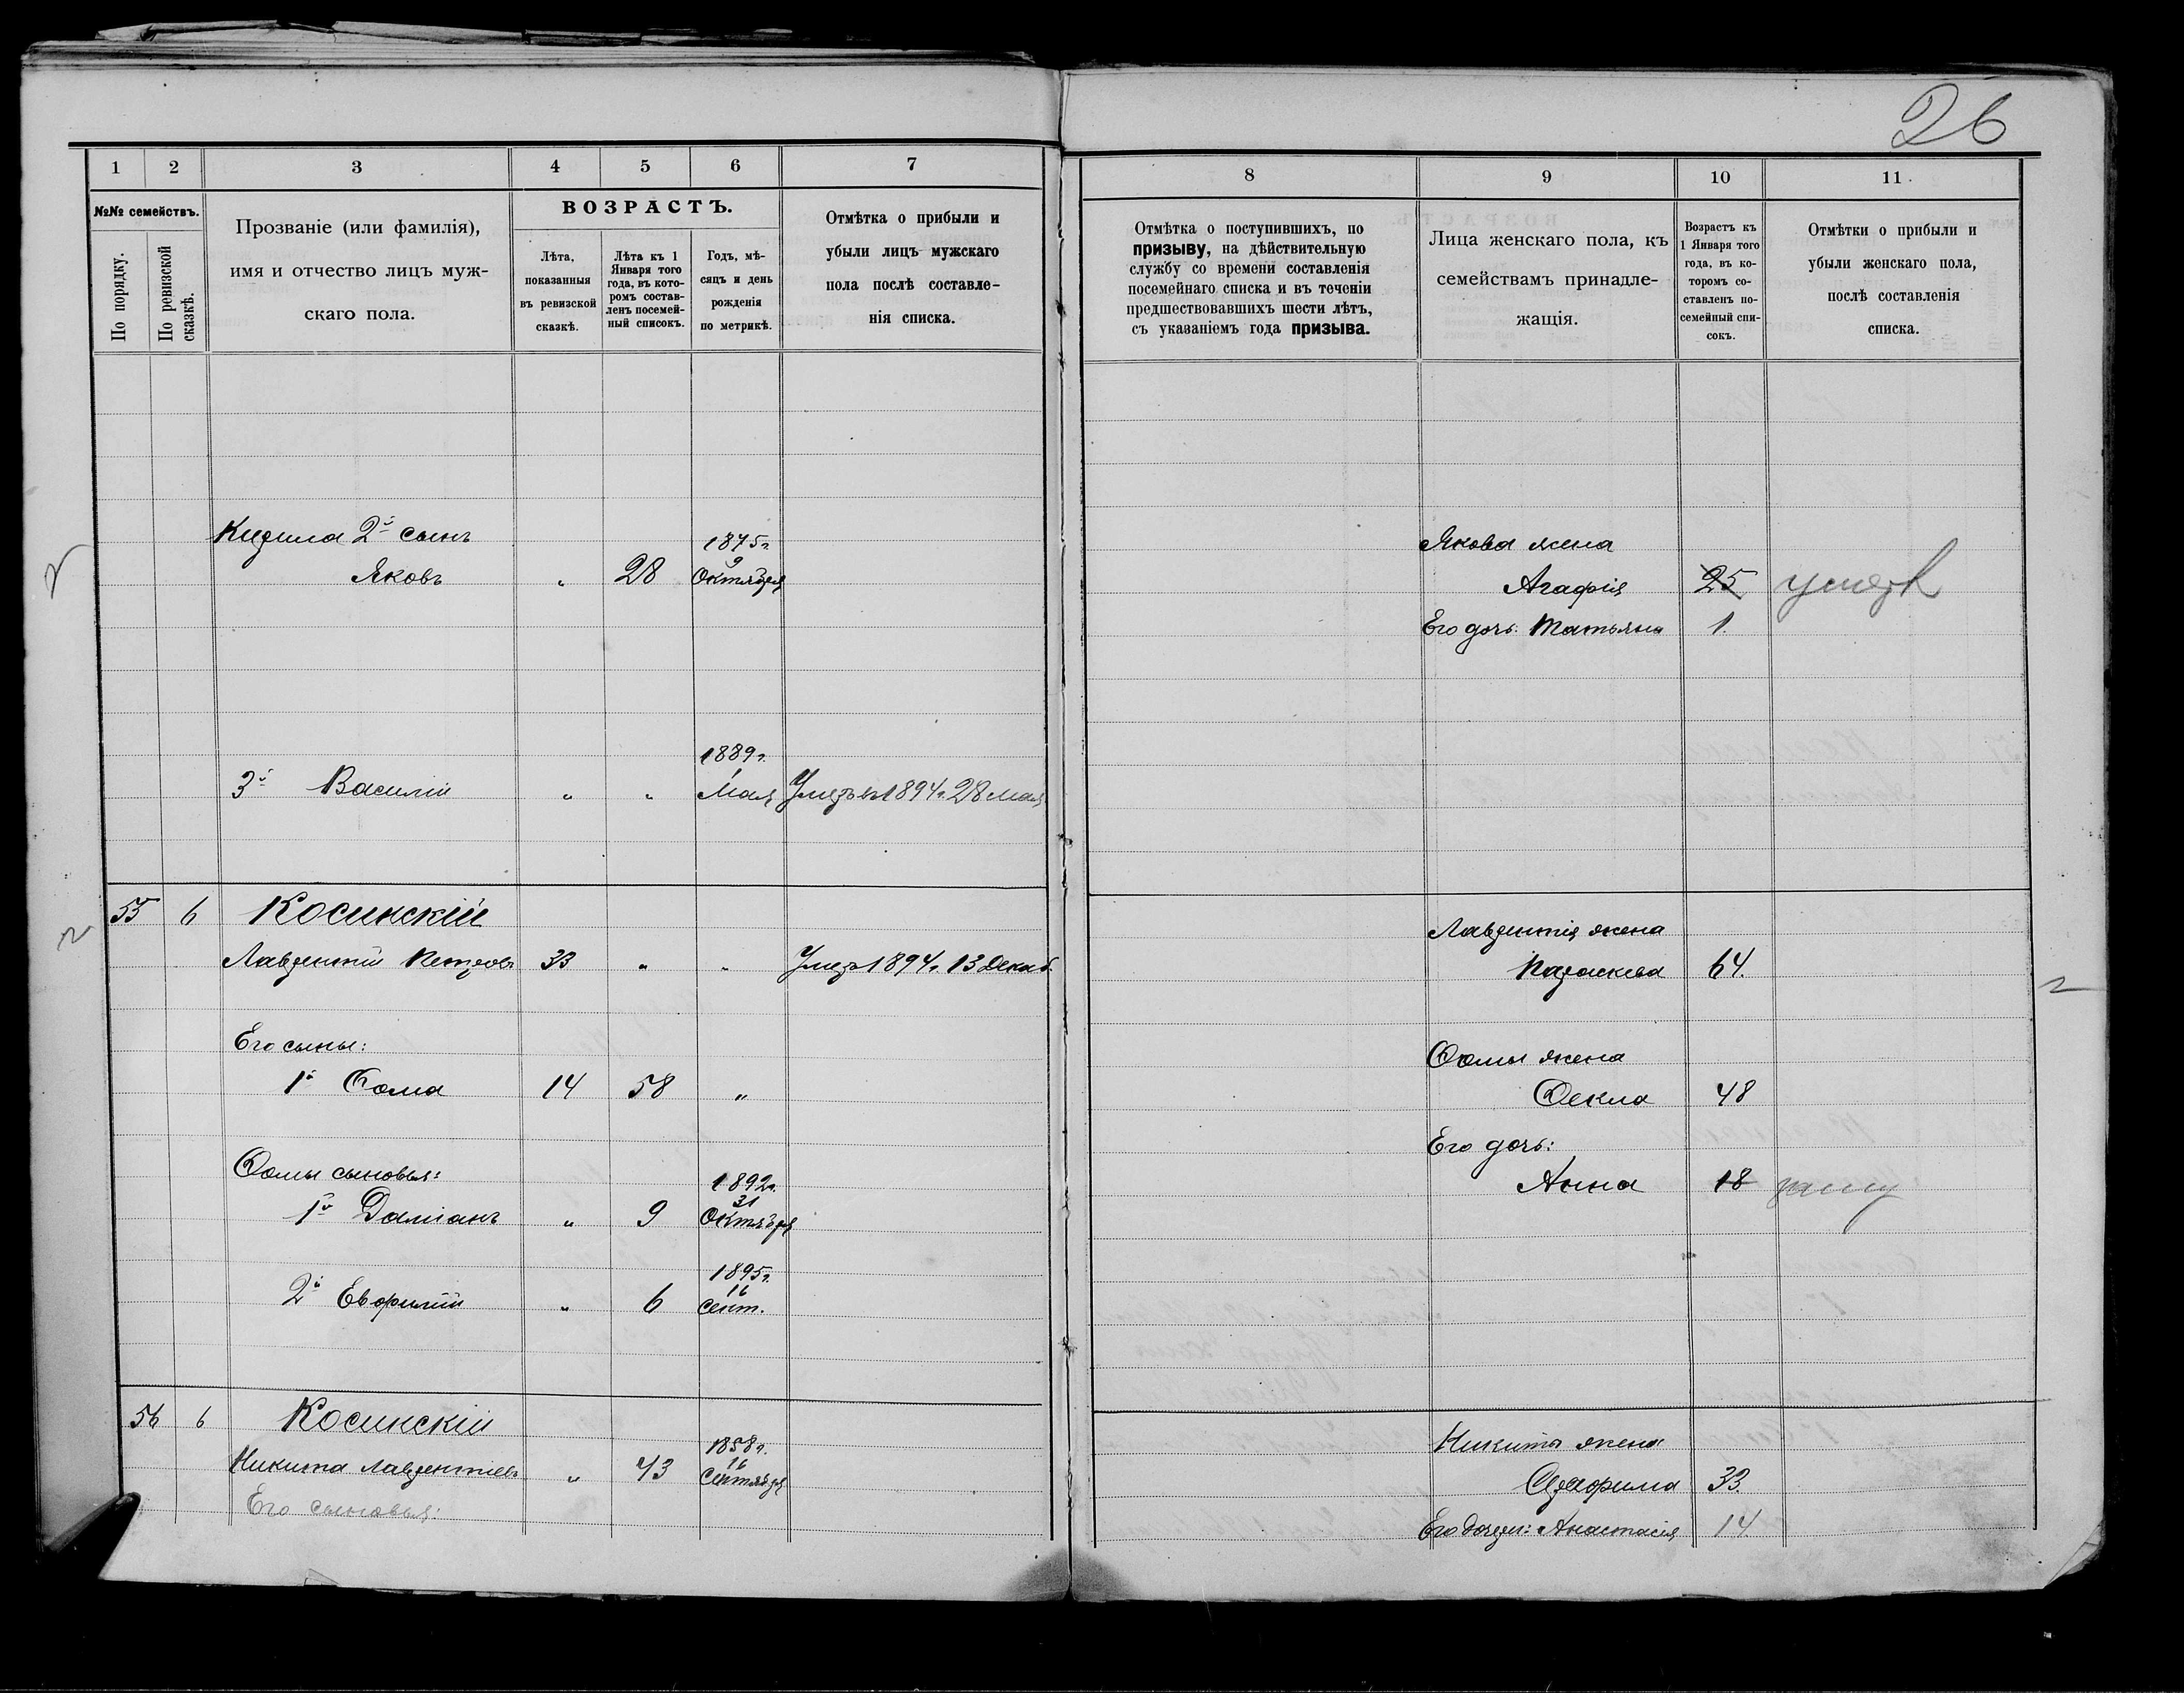 26
1
2
3
4
5
6
7
№№ семействъ.
По порядку.
По ревизской сказкѣ.
Прозваніе (или фамилія),
имя и отчество лицъ муж-
скаго пола.
ВОЗРАСТЪ.
Лѣта,
показанныя
въ ревизской
сказкѣ.
Лѣта къ 1
Января того
года, въ кото-
ромъ состав-
ленъ посемей-
ный списокъ.
Годъ, мѣ-
сяцъ и день
рожденія
по метрикѣ.
Отмѣтка о прибыли и
убыли лицъ мужскаго
пола послѣ составле-
нія списка.
Кирила 2й сынъ
1875г.
9
Яковъ " 28 Октября
1889г.
1
3й Василій " " Мая Умеръ въ 1894г. 28 мая
55 6 Косинскій
Лаврентій Петровъ 33 " " Умеръ 1894г. 13 Декаб.
Его сыны:
1й Ѳома 14 58 "
Ѳомы сыновья:
1892г.
31
1й Даміанъ " 9 Октября
1895г.
16
2й Евфимій " 6 Сент.
56 6 Косинскій
1858г.
16
Никита Лаврентіевъ " 43 Сентября
Его сыновья:
8
9
10
11
Отмѣтка о поступившихъ, по
призыву, на дѣйствительную
службу со времени составленія
посемейнаго списка и въ теченіи
предшествовавшихъ шести лѣтъ,
съ указаніемъ года призыва.
Лица женскаго пола, къ
семействамъ принадле-
жащія.
Возрастъ къ
1 Января того
года, въ ко-
торомъ со-
ставленъ по-
семейный спи-
сокъ.
Отмѣтки о прибыли и
убыли женскаго пола,
послѣ составленія
списка.
Якова жена
Агафія 25
Его дочь: Татьяна 1.
Лаврентія жена
Параскева 64.
Ѳомы жена
Ѳекла 48
Его дочь:
Анна 18
Никиты жена
Серафима 33.
Его дочери: Анастасія 14